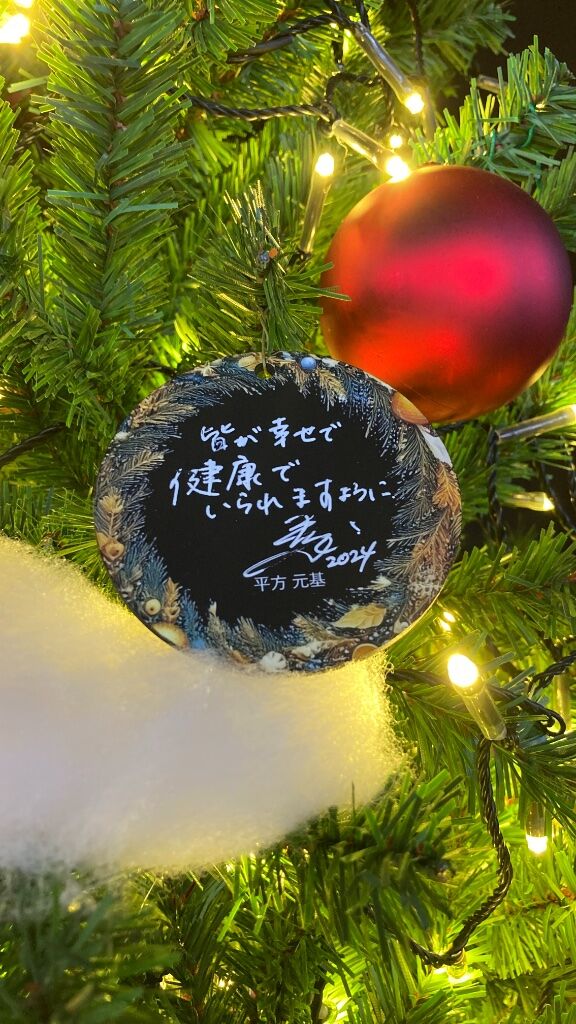 皆が幸せで
健康で
いられますように
2024
平方 元基